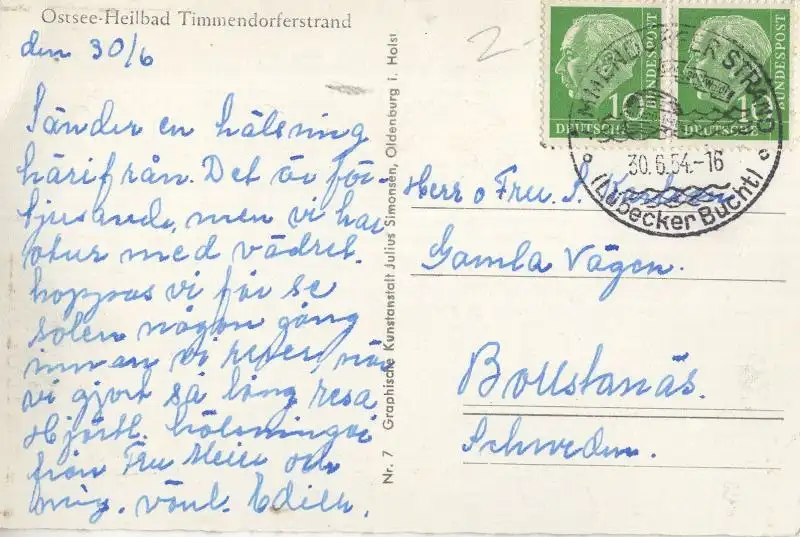 Ostsee-Heilbad Timmendorferstrand
den 30/6
Sänder en hälsning
härifrån. Det är för
tjusande, men vi har
otur med vädret.
hoppas vi får se
solen någon gång
innan vi reser, när
vi gjort så lång resa
Hjärtl. hälsningar
från Fru Meier och
mig. vänl. Edith.
Nr. 7 Graphische Kunstanstalt Julius Simonsen, Oldenburg i. Holst
2-
10
DEUTSCHE
BUNDESPOST
DEUTSCHE
BUNDESPOST
TIMMENDORFER STRAND
30.6.54.-16
(Lübecker Bucht)
Herr o Fru. S.
Gamla Vägen.
Bollstanäs.
Schweden.